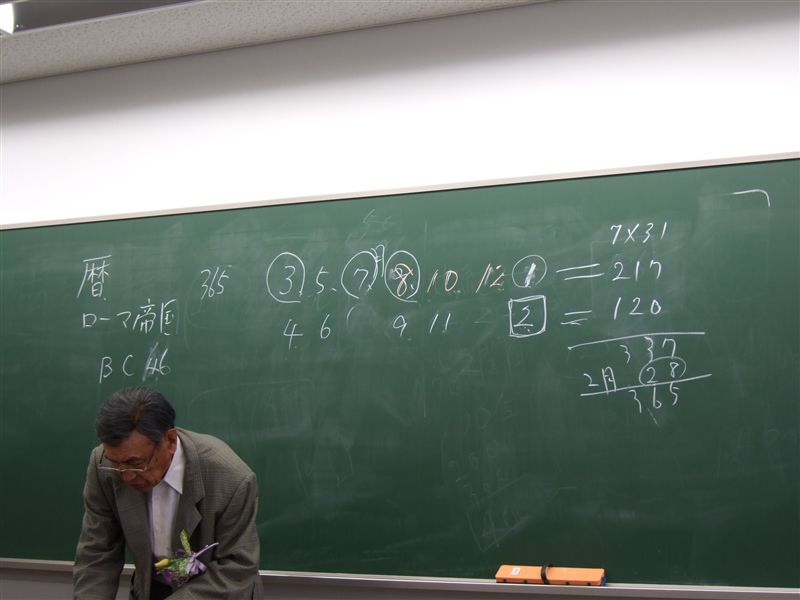 暦 365 3 5 7 月 8 10 12 1 = 7×31
217
ローマ帝国 4 6 9 11 2 = 120
BC 46
337
2月 28
365